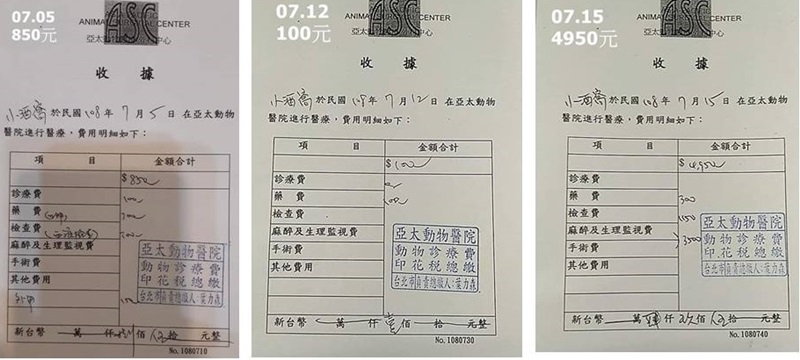 07.05
850元
ASC
ANIMA
CENTER
亞太
中心
收 據
小酒窩 於民國 108 年 7 月 5 日 在亞太動物
醫院進行醫療，費用明細如下：
項 目 金額合計
$850
診療費
藥 費 100
檢查費
麻醉及生理監視費
手術費
其他費用
亞太動物醫院
動物診療費
印花稅總繳
台北市負責總繳人:葉力森
新台幣 萬 仟 佰 拾 元整
No. 1080710
07.12
100元
ASC
ANIM
CENTER
亞太
中心
收 據
小酒窩 於民國 108 年 7 月 12 日 在亞太動物
醫院進行醫療，費用明細如下：
項 目 金額合計
$100
診療費
藥 費 100
檢查費
麻醉及生理監視費
手術費
其他費用
亞太動物醫院
動物診療費
印花稅總繳
台北市負責總繳人:葉力森
新台幣 萬 仟 壹 佰 拾 元整
No. 1080730
07.15
4950元
ASC
ANIMA
CENTER
亞太
中心
收 據
小酒窩 於民國 108 年 7 月 15 日 在亞太動物
醫院進行醫療，費用明細如下：
項 目 金額合計
$4,950
診療費
藥 費 300
檢查費 1150
麻醉及生理監視費
手術費 3500
其他費用
亞太動物醫院
動物診療費
印花稅總繳
台北市負責總繳人:葉力森
新台幣 萬 肆 仟 玖 佰 伍 拾 元整
No. 1080740